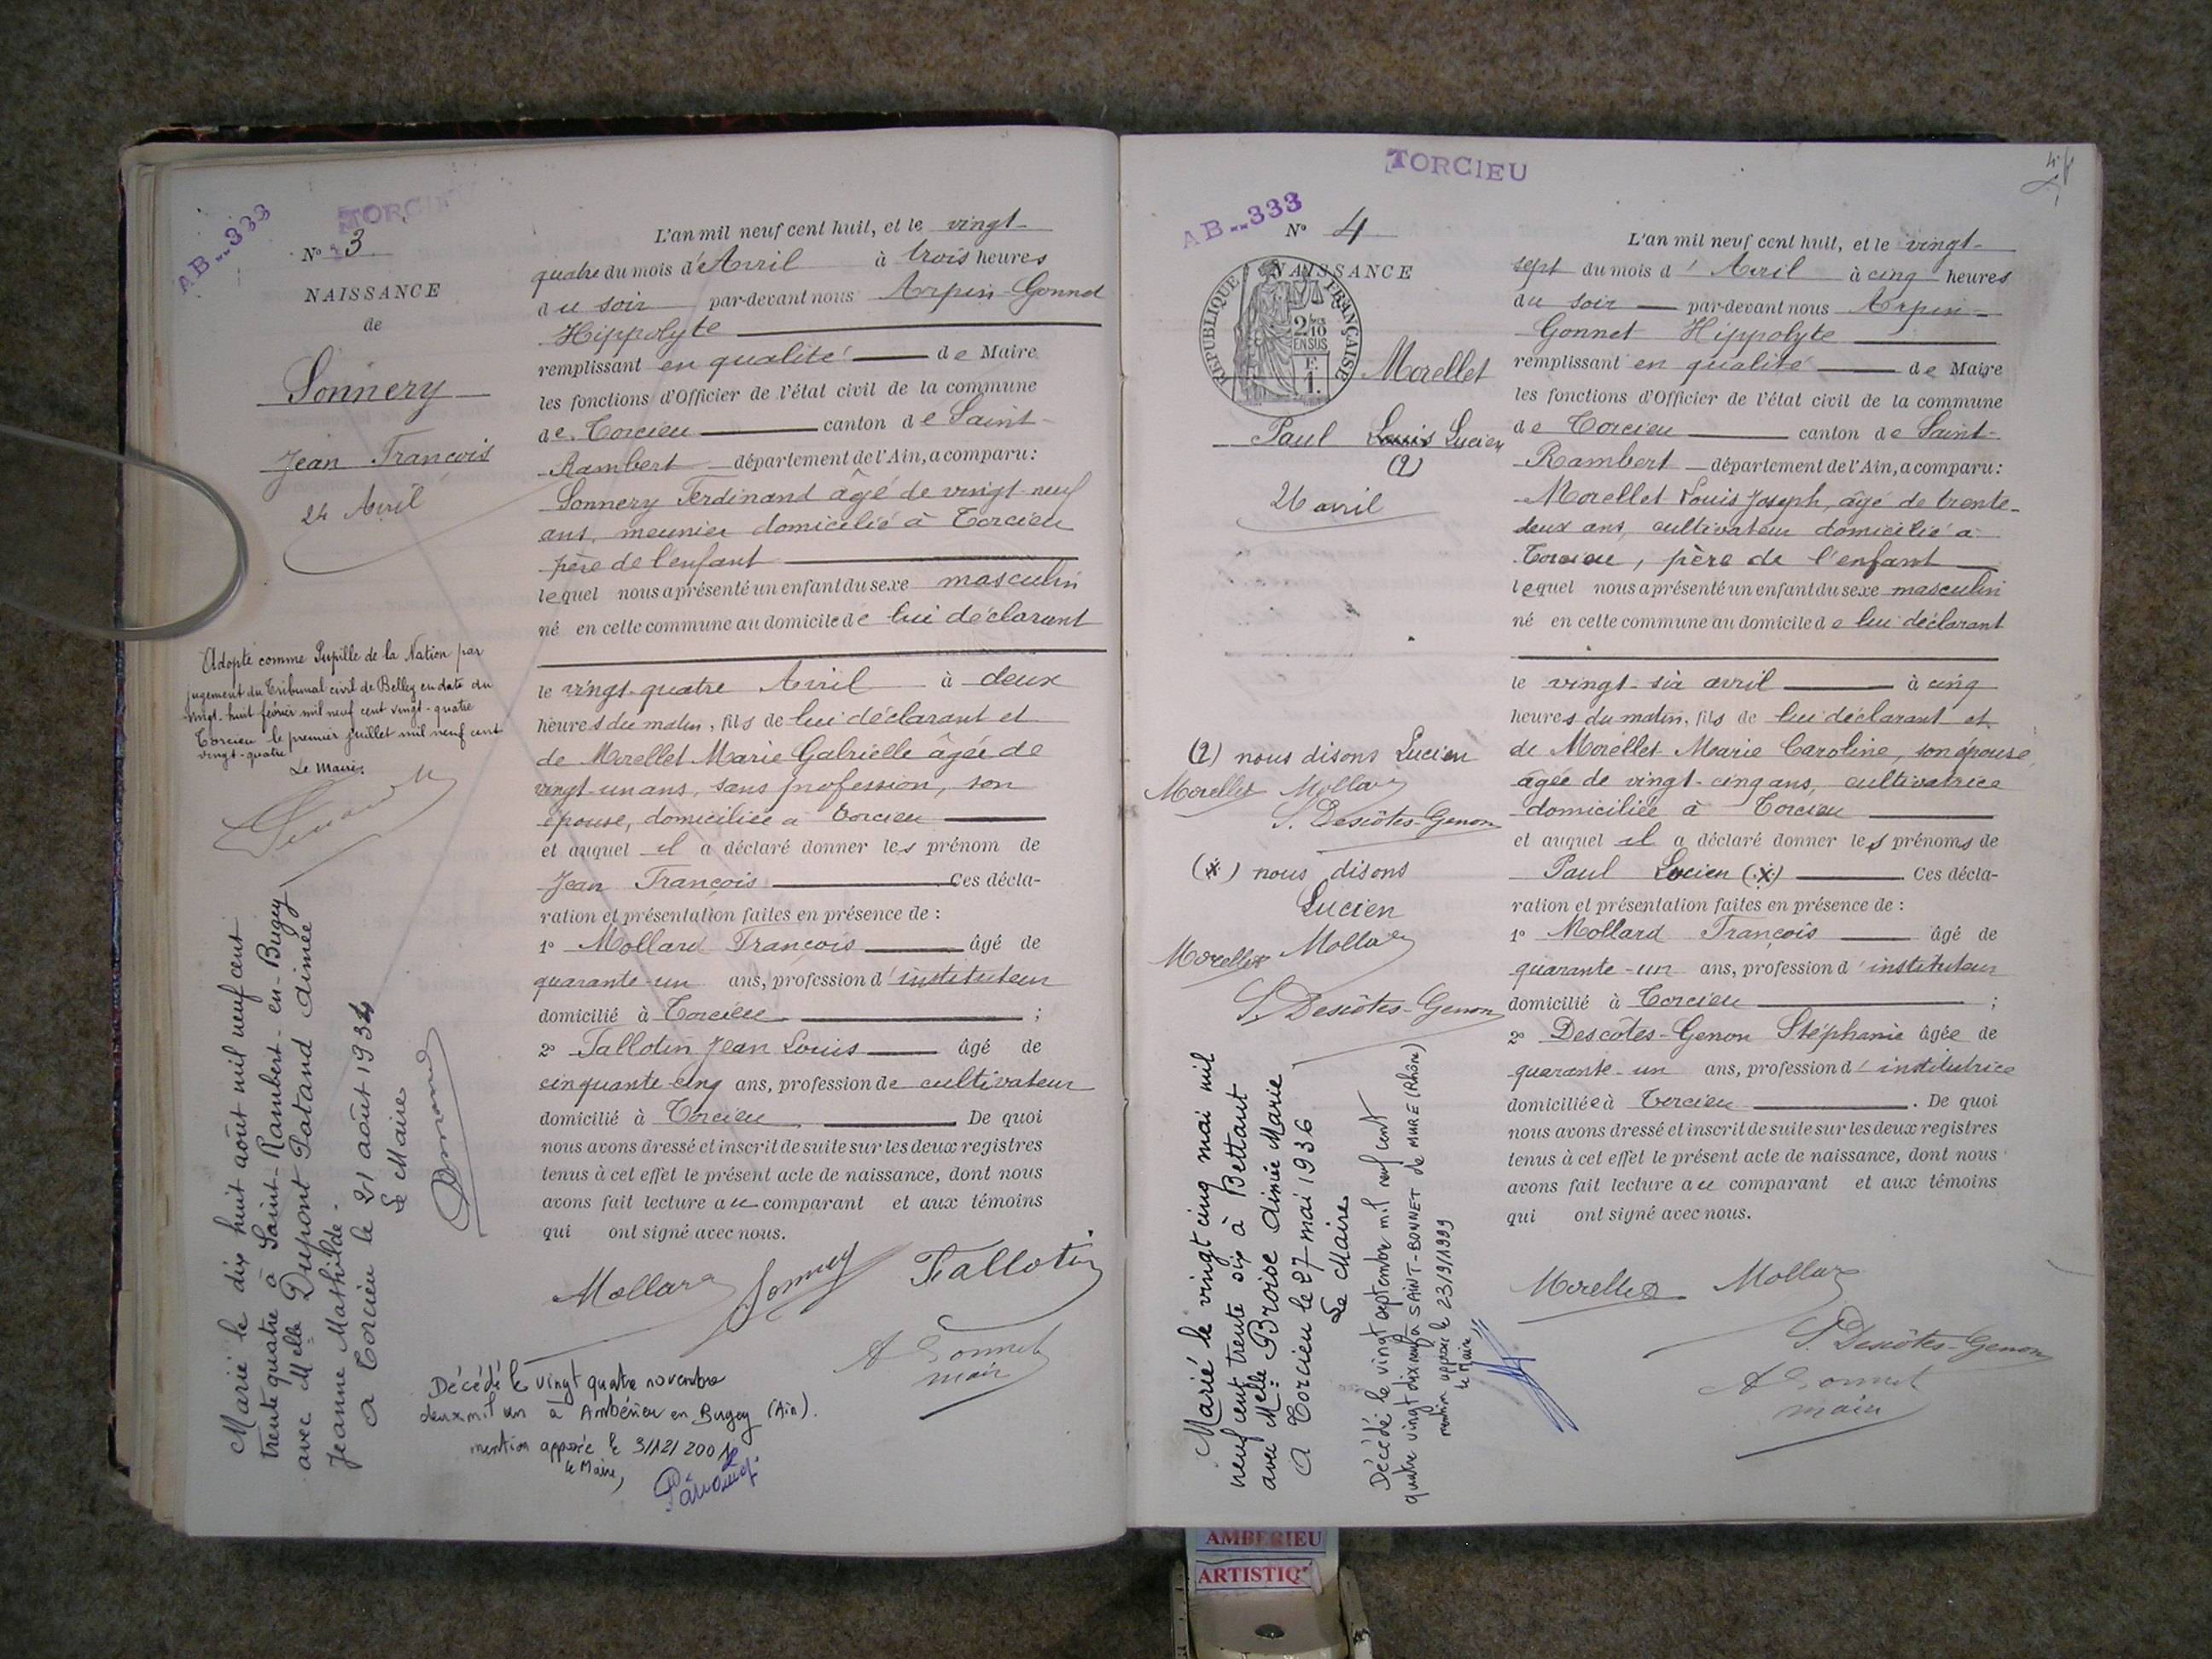 AB..333
TORCIEU
N° 3
NAISSANCE
de
Sonnery
Jean François
24 Avril
Adopté comme Pupille de la Nation par
jugement du Tribunal civil de Belley en date du
vingt-huit février mil neuf cent vingt-quatre
Torcieu le premier juillet mil neuf cent
vingt-quatre
Le Maire.
Marié le dix huit août mil neuf cent
trente quatre à Saint-Rambert-en-Bugey
avec Melle Dupont Patand Aimée
Jeanne Mathilde.
A Torcieu le 21 août 1934
Le Maire
L'an mil neuf cent huit, et le vingt-
quatre du mois d'Avril à trois heures
du soir par-devant nous Arpin-Gonnet
Hippolyte
remplissant en qualité de Maire
les fonctions d'Officier de l'état civil de la commune
de Torcieu canton de Saint-
Rambert département de l'Ain, a comparu :
Sonnery Ferdinand âgé de vingt-neuf
ans, meunier domicilié à Torcieu
père de l'enfant
lequel nous a présenté un enfant du sexe masculin
né en cette commune au domicile de lui déclarant
le vingt-quatre Avril à deux
heures du matin, fils de lui déclarant et
de Morellet Marie Gabrielle âgée de
vingt-un ans, sans profession, son
épouse, domiciliée à Torcieu
et auquel il a déclaré donner les prénom de
Jean François Ces décla-
ration et présentation faites en présence de :
1° Mollard François âgé de
quarante-un ans, profession d'instituteur
domicilié à Torcieu ;
2° Tallotin Jean Louis âgé de
cinquante-cinq ans, profession de cultivateur
domicilié à Torcieu. De quoi
nous avons dressé et inscrit de suite sur les deux registres
tenus à cet effet le présent acte de naissance, dont nous
avons fait lecture au comparant et aux témoins
qui ont signé avec nous.
Mollard Sonnery Tallotin
A Gonnet
maire
Décédé le vingt quatre novembre
deux mil un à Ambérieu en Bugey (Ain).
mention apposée le 3/12/2001
le Maire,
TORCIEU
AB..333
N° 4
NAISSANCE
RÉPUBLIQUE FRANÇAISE
2/10 EN SUS
Morellet
Paul Louis Lucien
(2)
26 avril
(2) nous disons Lucien
Morellet Mollard
S. Descôtes-Genon
(x) nous disons
Lucien
Morellet Mollard
S. Descôtes-Genon
Marié le vingt cinq mai mil
neuf cent trente six à Bettant
avec Melle Broise Aimée Marie
A Torcieu le 27 mai 1936
Le Maire
Décédé le vingt septembre mil neuf cent
quatre vingt dix neuf à SAINT-BONNET de MURE (Rhône)
mention apposée le 23/9/1999
le Maire
L'an mil neuf cent huit, et le vingt-
sept du mois d'Avril à cinq heures
du soir par-devant nous Arpin-
Gonnet Hippolyte
remplissant en qualité de Maire
les fonctions d'Officier de l'état civil de la commune
de Torcieu canton de Saint-
Rambert département de l'Ain, a comparu :
Morellet Louis Joseph, âgé de trente-
deux ans, cultivateur domicilié à
Torcieu, père de l'enfant
lequel nous a présenté un enfant du sexe masculin
né en cette commune au domicile de lui déclarant
le vingt-six avril à cinq
heures du matin, fils de lui déclarant et
de Morellet Marie Caroline, son épouse,
âgée de vingt-cinq ans, cultivatrice
domiciliée à Torcieu
et auquel il a déclaré donner les prénoms de
Paul Lucien (x) Ces décla-
ration et présentation faites en présence de :
1° Mollard François âgé de
quarante-un ans, profession d'instituteur
domicilié à Torcieu ;
2° Descôtes-Genon Stéphanie âgée de
quarante-un ans, profession d'institutrice
domiciliée à Torcieu. De quoi
nous avons dressé et inscrit de suite sur les deux registres
tenus à cet effet le présent acte de naissance, dont nous
avons fait lecture au comparant et aux témoins
qui ont signé avec nous.
Morellet Mollard
S. Descôtes-Genon
A Gonnet
maire
AMBERIEU
ARTISTIQ